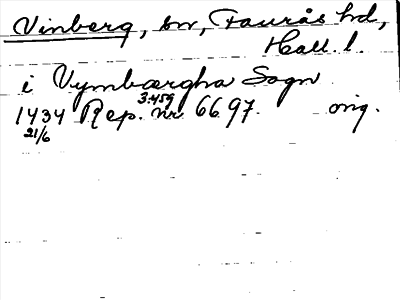 Vinberg, sn, Faurås hd,
Hall. l.
i Vymbærgha Sogn
3:459
1434 Rep. nr 6697. orig.
21/6